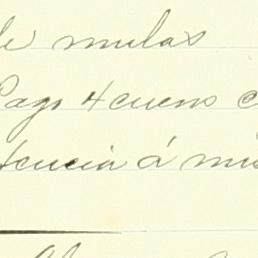 de mulas
Pago 4 cueros c
tencia á mis